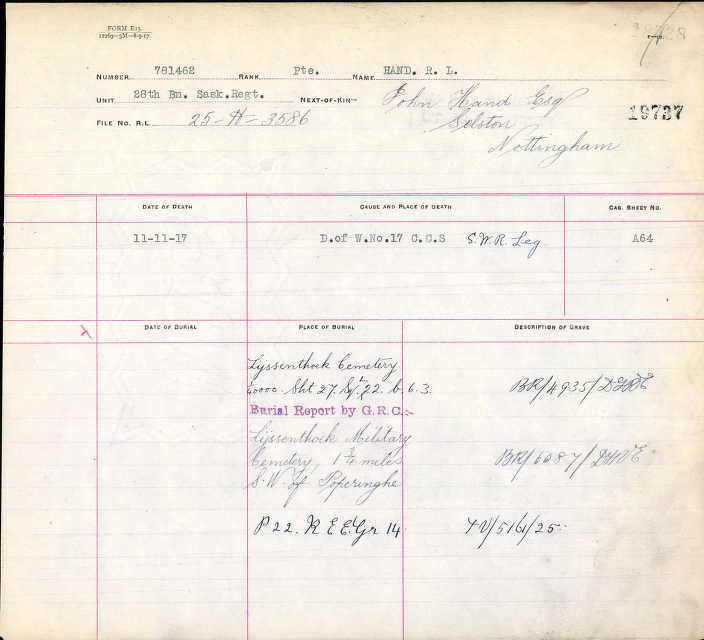 FORM E13.
NUMBER 781462 RANK Pte. NAME HAND. R. L.
UNIT 28th Bn. Sask.Regt. NEXT-OF-KIN— John Hand Esq
FILE NO. R.L. 25-H-3586 Selston 19737
Nottingham
DATE OF DEATH CAUSE AND PLACE OF DEATH CAS. SHEET NO.
11-11-17 D.of W.No.17 C.C.S S.W.R. Leg. A64
DATE OF BURIAL PLACE OF BURIAL DESCRIPTION OF GRAVE
Lyssenthoek Cemetery
Sht 27. 22. b. 6.3. BR/4935/
Burial Report by G.R.C.:-
Lijssenthoek Military
Cemetery, 1¼ miles BR/6287/
S.W. of Poperinghe
P 22. R E E. Gr 14